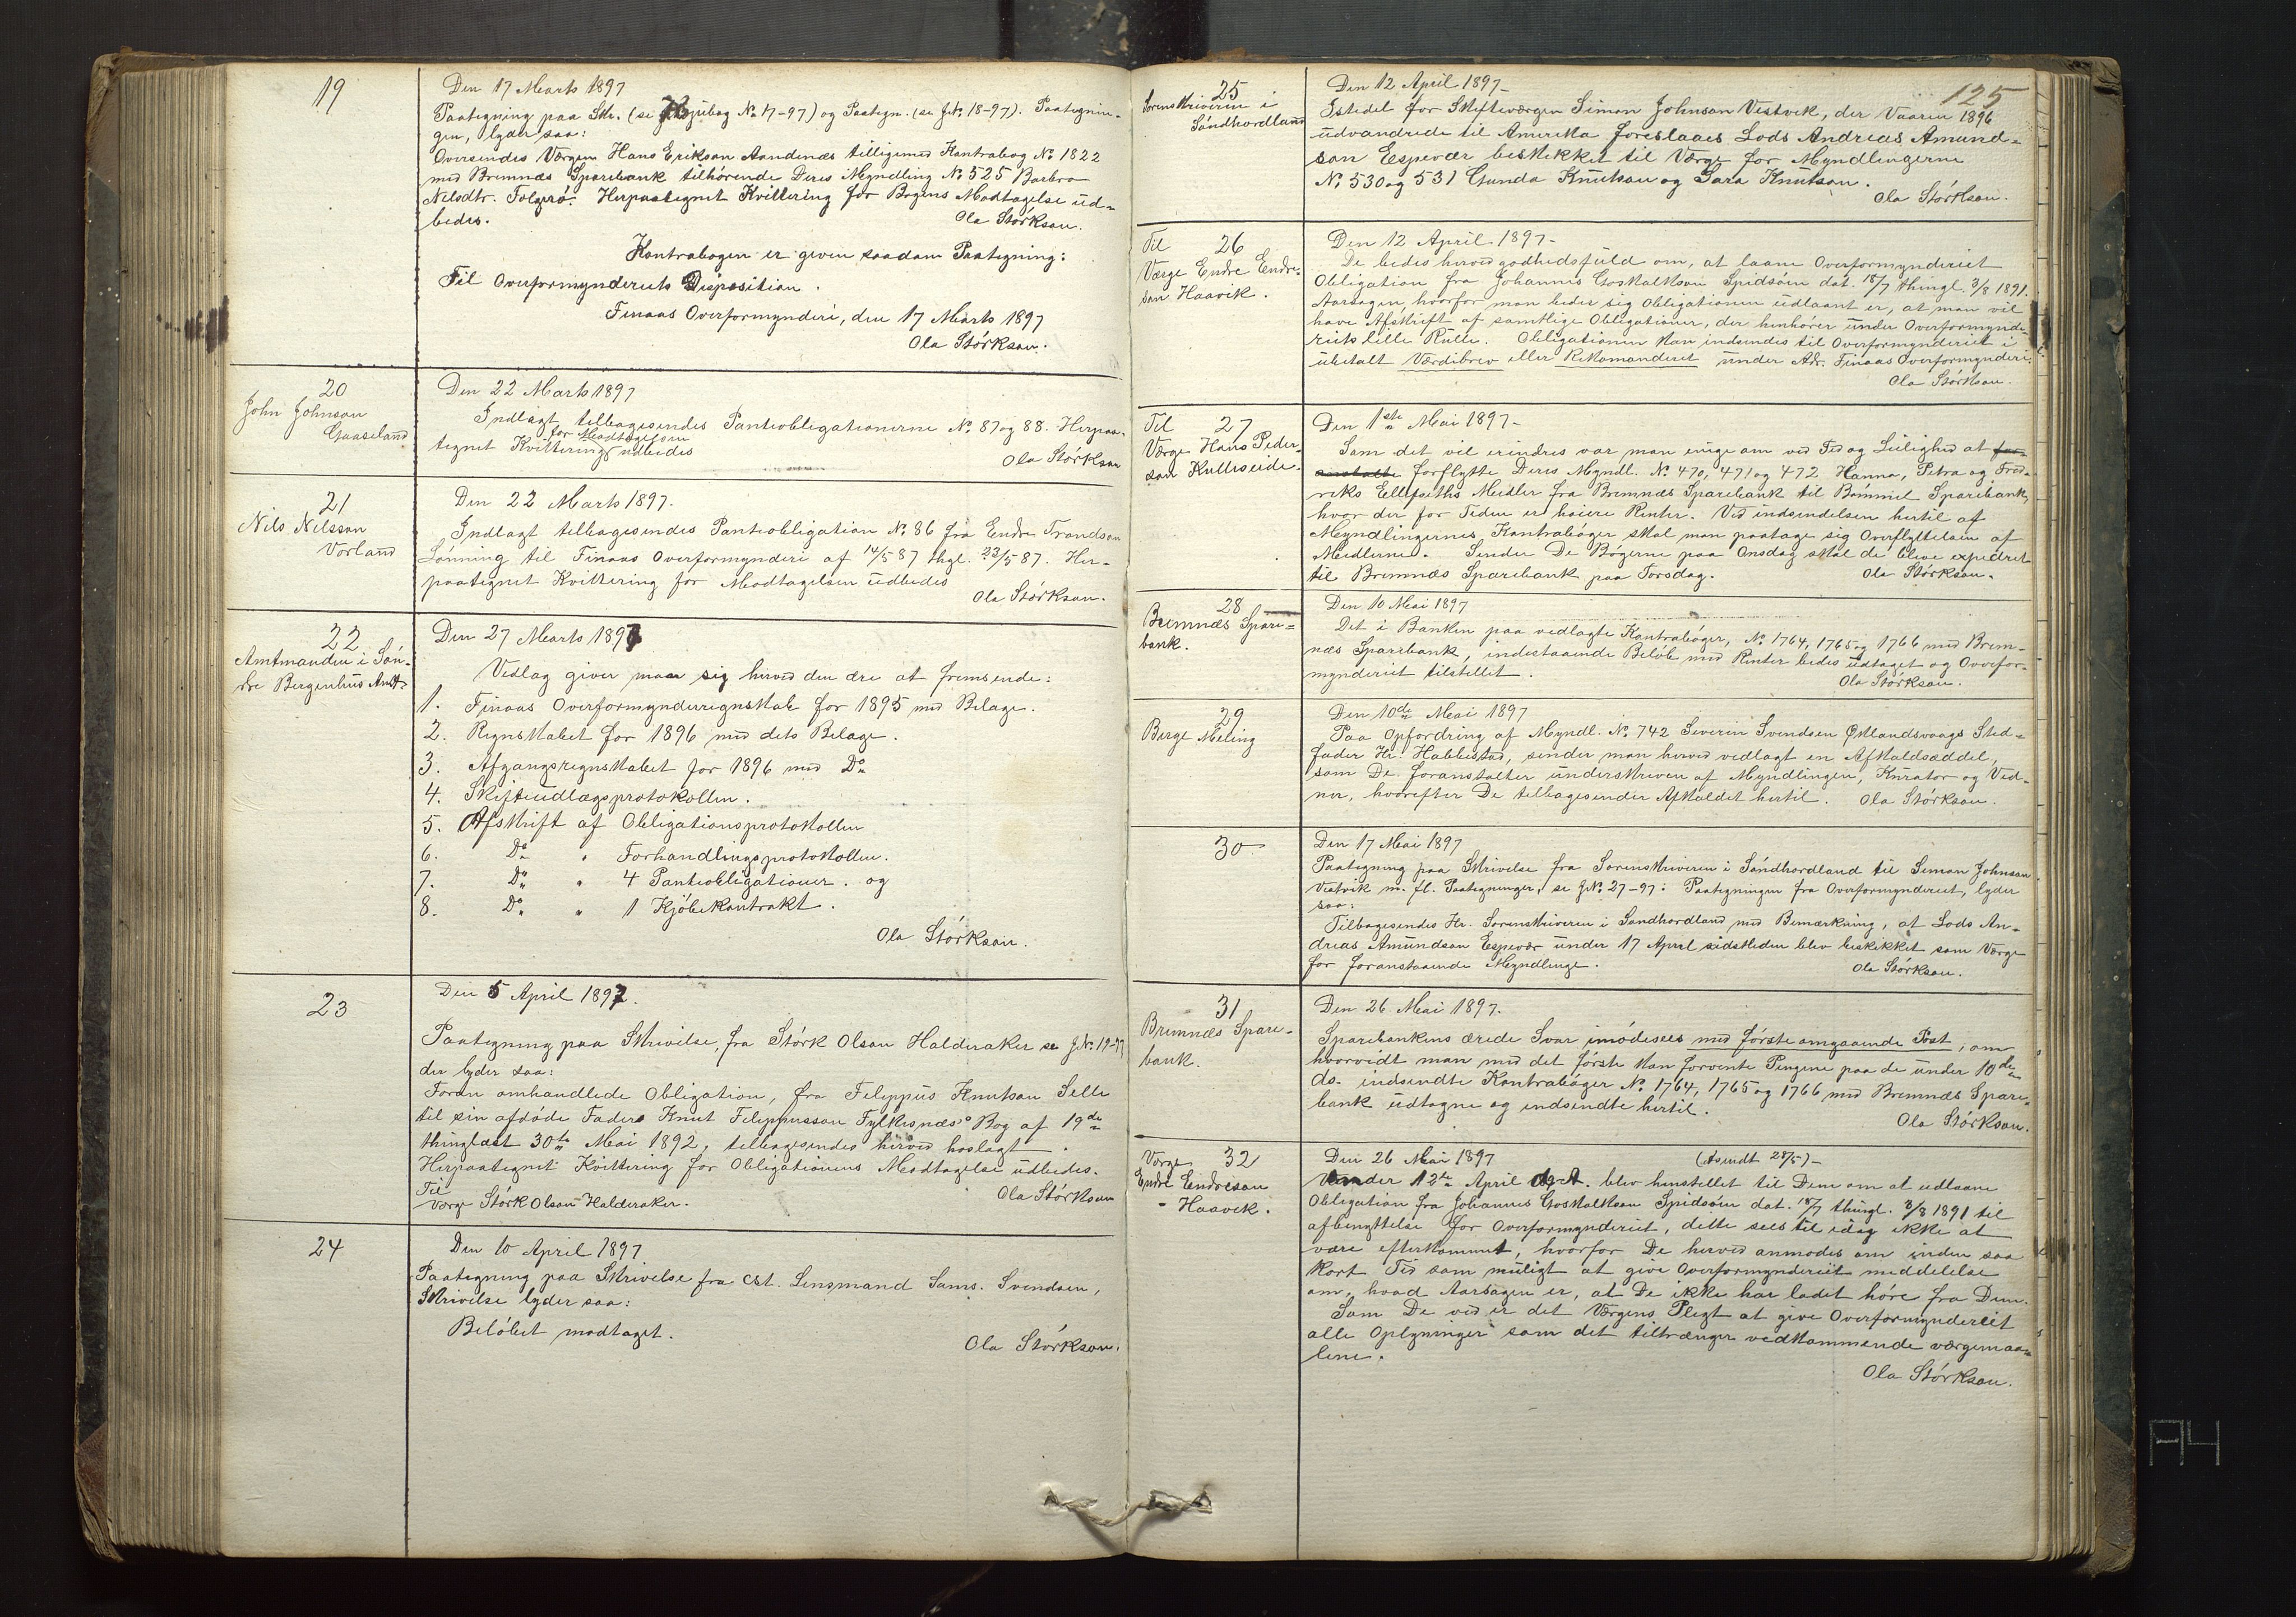 19
Den 17 Marts 1897
Paategning paa Skr. (se Kopibog No 17-97) og Paategn. (se JNo. 18-97). Paategnin-
gen, lyder saa:
Oversendes Værgen Hans Erikson Aandenæs tilligemed Kontrabog No 1822
med Bremnæs Sparebank tilhörende Deres Myndling No 525 Barbro
Nelsdtr. Folgerö. Herpaategnet Kvittering for Bogens Modtagelse ud-
bedes.
Ola Störkson.
Kontrabogen er given saadan Paategning:
Til Overformynderiets Disposition.
Finaas Overformynderi, den 17 Marts 1897
Ola Störkson.
20
John Johnson
Gaaseland
Den 22 Marts 1897
Indlagt tilbagesendes Panteobligationerne No 87 og 88. Herpaa-
for Modtagelsen
tegnet Kvittering udbedes
Ola Störkson
21
Nils Nilsson
Vorland
Den 22 Marts 1897.
Indlagt tilbagesendes Panteobligation No. 86 fra Endre Trondson
Lönning til Finaas Overformynderi af 14/5 87 thgl. 23/5 87. Her-
paategnet Kvittering for Modtagelsen udbedes
Ola Störkson.
22
Amtmanden i Sön-
dre Bergenhus Amt
Den 27 Marts 1897
Vedlag giver man sig herved den ære at fremsende:
1. Finaas Overformynderregnskab for 1895 med Bilage.
2. Regnskabet for 1896 med dets Bilage.
3. Afgangsregnskabet for 1896 med Do
4. Skifteudlægsprotokollen.
5. Afskrift af Obligationsprotokollen
6. Do " Forhandlingsprotokollen.
7. Do " 4 Panteobligationer. og
8. Do " 1 Kjöbekontrakt.
Ola Störkson.
23
Den 5 April 1897.
Paategning paa Skrivelse, fra Störk Olson Halderaker se JNo. 19-97
der lyder saa:
Foran omhandlede Obligation, fra Filippus Knutson Selle
til sin afdöde Faders Knut Filippusson Fylkesnæs's Bog af 19de
thinglæst 30te Mai 1892, tilbagesendes herved hoslagt.
Herpaategnet Kvittering for Obligationens Modtagelse udbedes.
Til
Værge Störk Olson Halderaker.
Ola Störkson
24
Den 10 April 1897
Paategning paa Skrivelse fra cst. Lensmand Sams. Svendsen,
Skrivelse lyder saa:
Belöbet modtaget.
Ola Störkson.
125
25
Sorenskriveren i
Söndhordland
Den 12 April 1897-
Istedet for Skifteværgen Simon Johnson Vestvik, der Vaaren 1896
udvandrede til Amerika foreslaaes Lods Andreas Amund-
son Espevær beskikket til Værge for Myndlingerne
No. 530 og 531 Gunda Knutson og Sara Knutson.
Ola Störkson.
Til 26
Værge Endre Endre-
sen Haavik.
Den 12 April 1897-
De bedes herved godhedsfuld om, at laane Overformynderiet
Obligation fra Johannes Goskalkson Spidsöen dat. 18/7 thingl. 3/8 1891.
Aarsagen, hvorfor man beder sig Obligationen udlaant er, at man vil
have Afskrift af samtlige Obligationer, der henhörer under Overformynde-
riets lille Rulle. Obligationen kan indsendes til Overformynderiet i
ubetalt Værdibrev eller Rekomanderet under Adr. Finaas Overformynderi.
Ola Störkson.
Til 27
Værge Hans Peder-
son Kulleseide.
Den 1ste Mai 1897-
Som det vil erindres var man enige om ved Tid og Leilighed at
forflytte Deres Myndl. No. 470, 471 og 472 Hanna, Petra og Fred-
riks Ellefseths Midler fra Bremnæs Sparebank til Bömmel Sparebank,
hvor der for Tiden er höiere Renter. Ved indsendelsen hertil af
Myndlingernes Kontraböger skal man paatage sig Overflyttelsen af
Midlerne. Sender De Bögerne paa Onsdag skal de blive expederet
til Bremnæs Sparebank paa Torsdag.
Ola Störkson.
28
Bremnæs Spare=
bank.
Den 10 Mai 1897
Det i Banken paa vedlagte Kontraböger, No. 1764, 1765 og 1766 med Brem-
næs Sparebank, indestaaende Belöb med Renter bedes udtaget og Overfor-
mynderiet tilstillet.
Ola Störkson.
29
Berge Meling
Den 10de Mai 1897
Paa Opfordring af Myndl. No. 742 Severin Svendsen Øklandsvaags Sted-
fader Hr. Habbestad, sender man herved vedlagt en Afkaldsseddel,
som De foranstalter underskreven af Myndlingen, Kurator og Vid-
ner, hvorefter De tilbagesender Afkaldet hertil. Ola Störkson.
30
Den 17 Mai 1897
Paategning paa Skrivelse fra Sorenskriveren i Söndhordland til Simon Johnson
Vestvik m. fl. Paategninger, se JNo. 27-97: Paategningen fra Overformynderiet, lyder
saa:
Tilbagesendes Hr. Sorenskriveren i Söndhordland med Bemærkning, at Lods An-
dreas Amundson Espevær under 17 April sidstleden blev beskikket som Værge
for foranstaaende Myndlinge.
Ola Störkson.
31
Bremnæs Spare-
bank.
Den 26 Mai 1897.
Sparebankens ærede Svar imödesees med förste omgaaende Post, om
hvorvidt man med det förste kan forvente Pengene paa de under 10de
ds. indsendte Kontraböger No. 1764, 1765 og 1766 med Bremnæs Spare-
bank udtagne og indsendte hertil.
Ola Störkson.
Værge 32
Endre Endreson
- Haavik.
Den 26 Mai 1897 (Asendt 28/5)-
Under 12te April d. A. blev henstillet til Dem om at udlaane
Obligation fra Johannes Goskalkson Spidsöen dat. 18/7 thingl. 3/8 1891 til
afbenyttelse for Overformynderiet, dette sees til idag ikke at
være efterkommet, hvorfor De herved anmodes om inden saa
kort Tid som muligt at give Overformynderiet meddelelse
om, hvad Aarsagen er, at De ikke har ladet höre fra Dem.
Som De ved er det Værgens Pligt at give Overformynderiet
alle Oplysninger som det tiltrænger vedkommende værgemaa-
lene.
Ola Störkson.